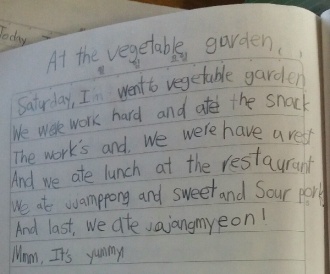 Today
At the vegetable garden
Saturday, I'm went to vegetable garden
We were work hard and ate the snack
The work's and. We were have a rest
And we ate lunch at the restaurant
We ate jjamppong and sweet and sour pork
And last, we ate jajangmyeon!
Mmm, It's yummy